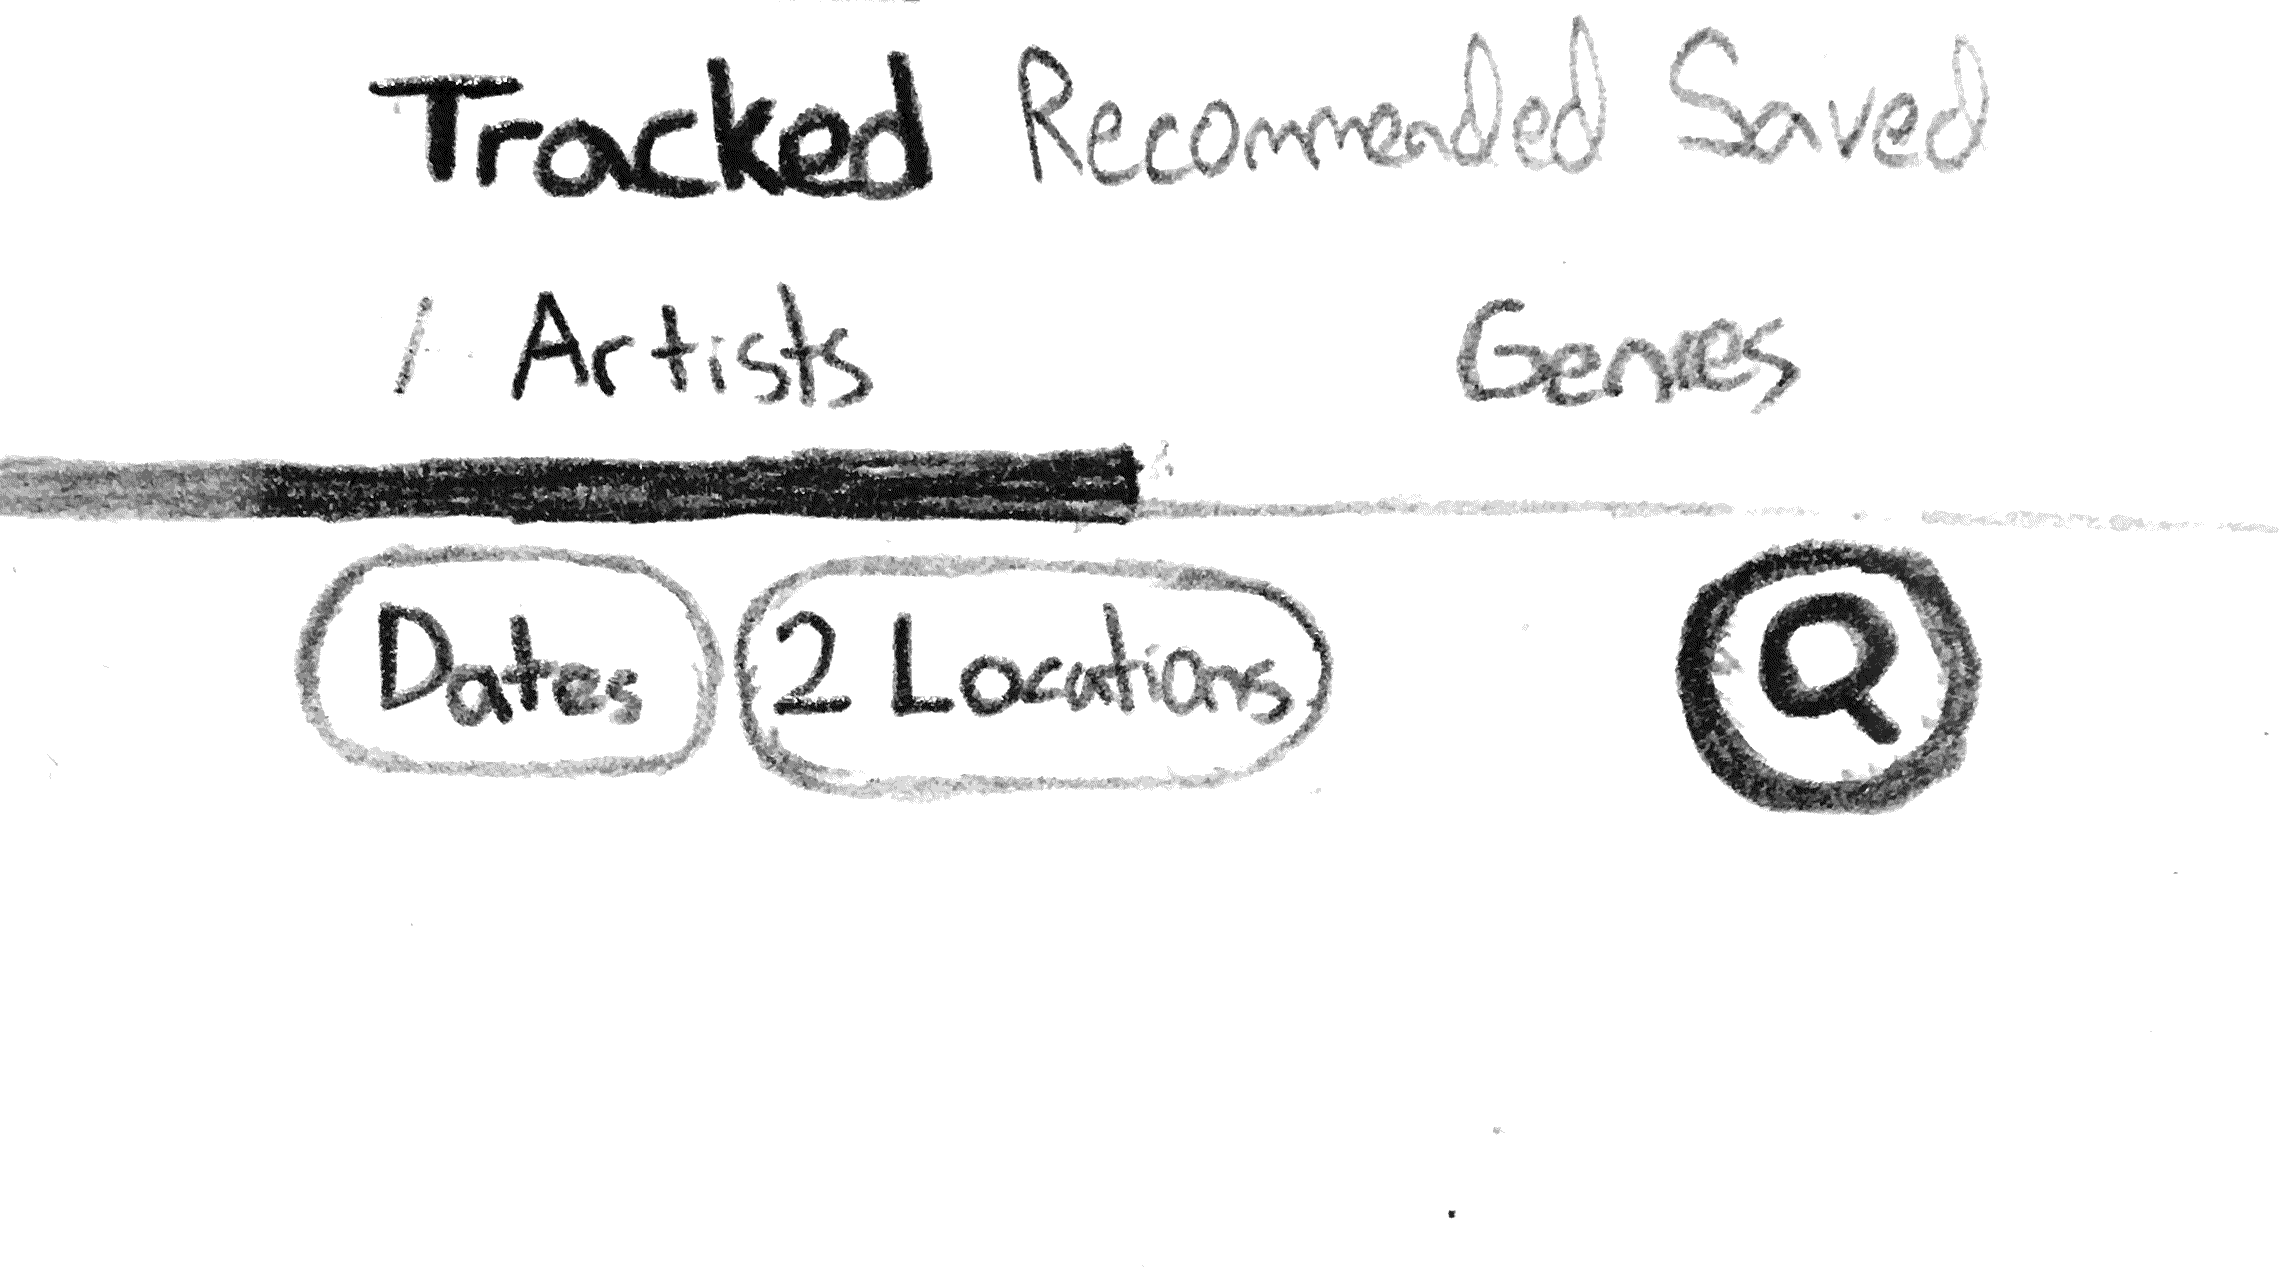 Tracked Recommended Saved
Artists Genres
Dates 2 Locations